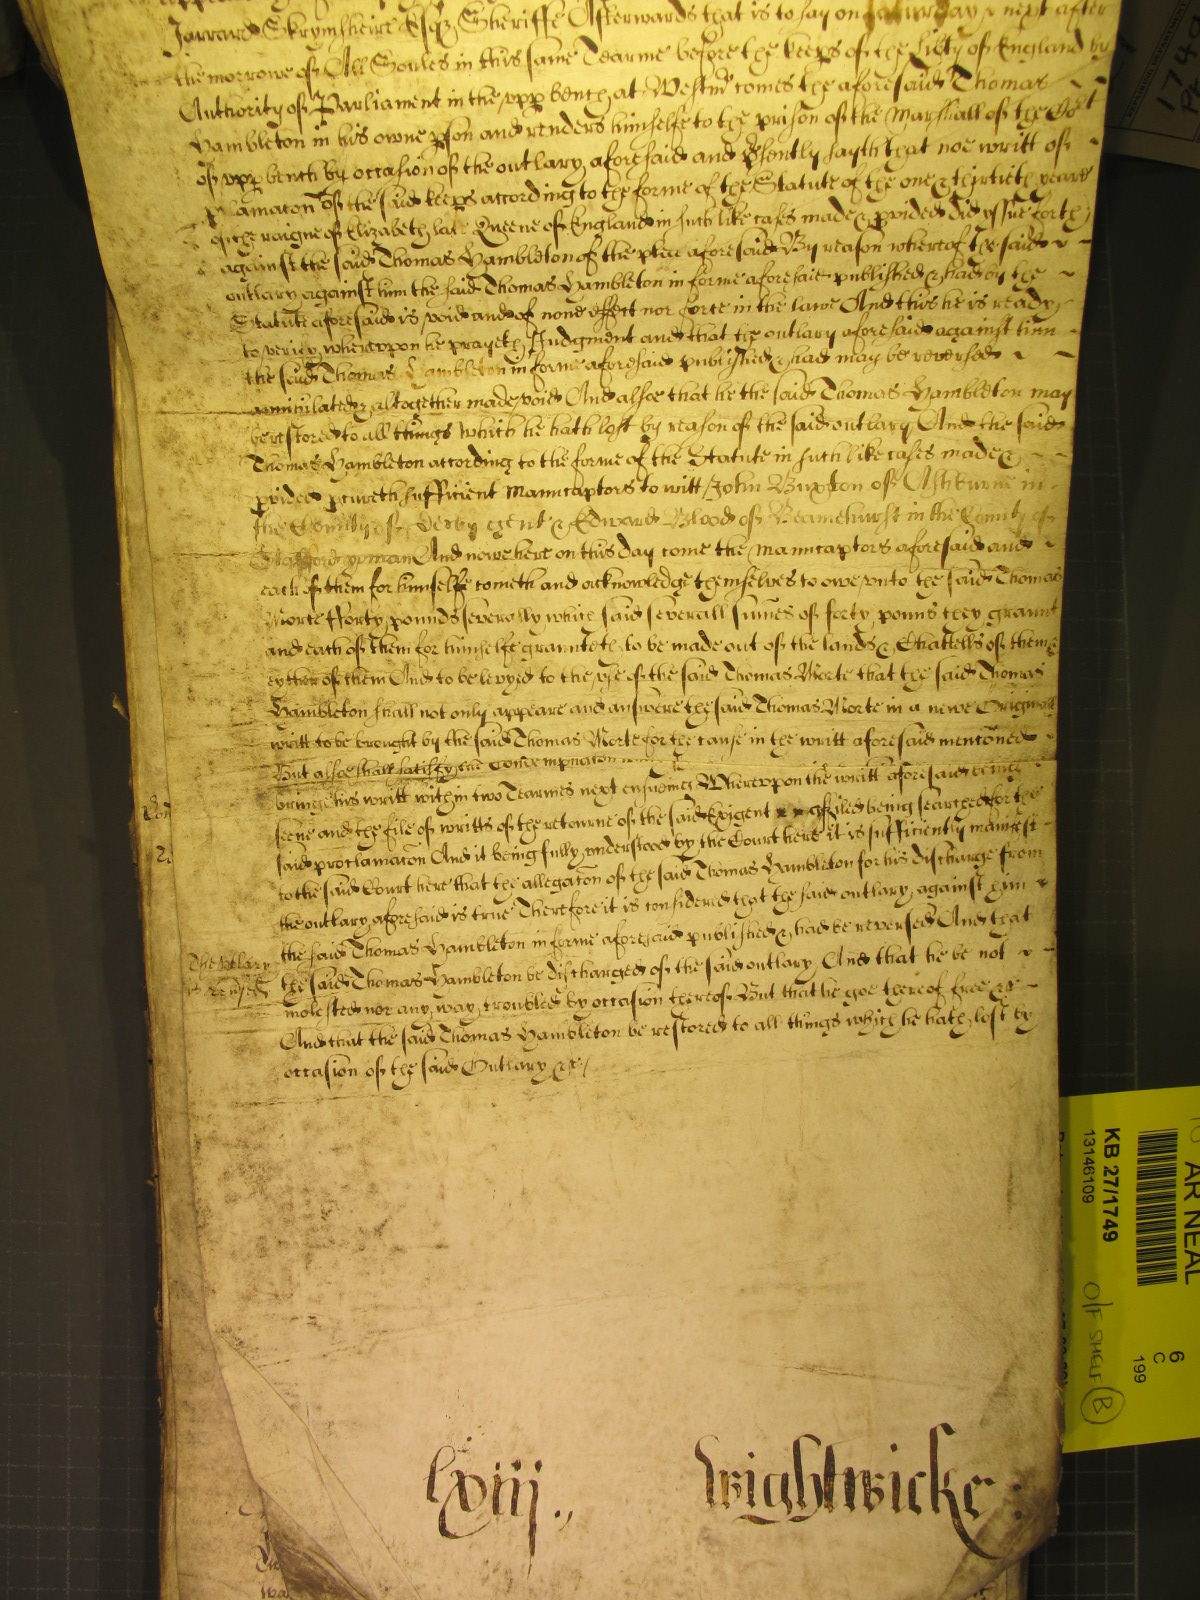 Jarrard Skrymsheire Esqr Sheriffe Afterwards that is to say on Saturday next after
the morrowe of All Soules in this same Tearme before the keeprs of the libty of England by
Authority of Parliament in the vpp bench at Westmr comes the aforesaid Thomas
Hambleton in his owne pson and renders himselfe to the prison of the Marshall of the
of vpp bench by occasion of the outlary aforesaid and psently sayth that noe writt of
pclamacon of the said keeprs according to the forme of the Statute of the one & thirtieth yeare
of the raigne of Elizabeth late Queene of England in such like cases made & pvided did yssue forth
against the said Thomas Hambleton of the place aforesaid By reason whereof the said
outlary against him the said Thomas Hambleton in forme aforesaid published & had by the
Statute aforesaid is void and of none effect nor force in the lawe And this he is ready
to verify wherevpon he prayeth Judgment and that the outlary aforesaid against him
the said Thomas Hambleton in forme aforesaid published & had may be reversed
annihilated & altogether made void And alsoe that he the said Thomas Hambleton may
be restored to all things which he hath lost by reason of the said outlary And the said
Thomas Hambleton according to the forme of the Statute in such like cases made &
pvided pcureth sufficient Manucaptors to witt John Buxton of Ashburne in
the County of Derby gent & Edward Blood of Beamehurst in the County of
Stafford yoman And nowe here on this day come the Manucaptors aforesaid and
each of them for himselfe cometh and acknowledge themselves to owe vnto the said Thomas
Morte fforty pounds severally which said severall summes of forty pouns they graunt
and each of them for himselfe graunteth to be made out of the lands & Chattells of them &
eyther of them And to be levyed to the vse of the said Thomas Morte that the said Thomas
Hambleton shall not only appeare and answere the said Thomas Morte in a newe Originall
writt to be brought by the said Thomas Morte for the cause in the writt aforesaid mencioned
But alsoe shall satisfy the Condempnacon
bringe his writt within two Tearmes next ensueing Wherevpon the writt aforesaid being
seene and the file of writts of the retourne of the said Exigent affiled being searched for the
said proclamacon And it being fully vnderstood by the Court here it is sufficiently manifest
to the said Court here that the allegacon of the said Thomas Hambleton for his discharge from
the outlary aforesaid is true Therefore it is considered that the said outlary against him
the said Thomas Hambleton in forme aforesaid published & had be reversed And that
The vtlary
is revsed
the said Thomas Hambleton be discharged of the said outlary And that he be not
molested nor any way troubled by occasion thereof But that he goe thereof free &c
And that the said Thomas Hambleton be restored to all things which he hath lost by
occasion of the said Outlary &c
lxiij
Wightwicke
KB 27/1749
13146109
AR NEAL
6
C
199
O/F SHELF B